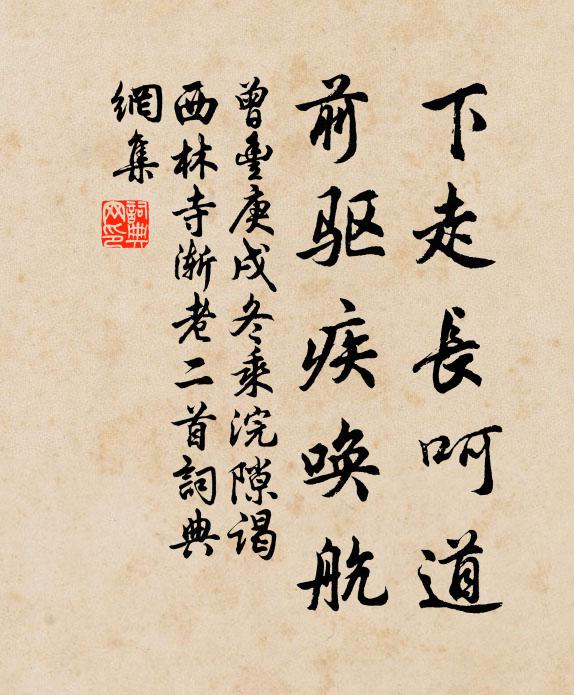 下走長呵道
前驱疾唤航
曾豐庚戌冬乘浣隙謁
西林寺漸老二首詞典
網集
詞典网印